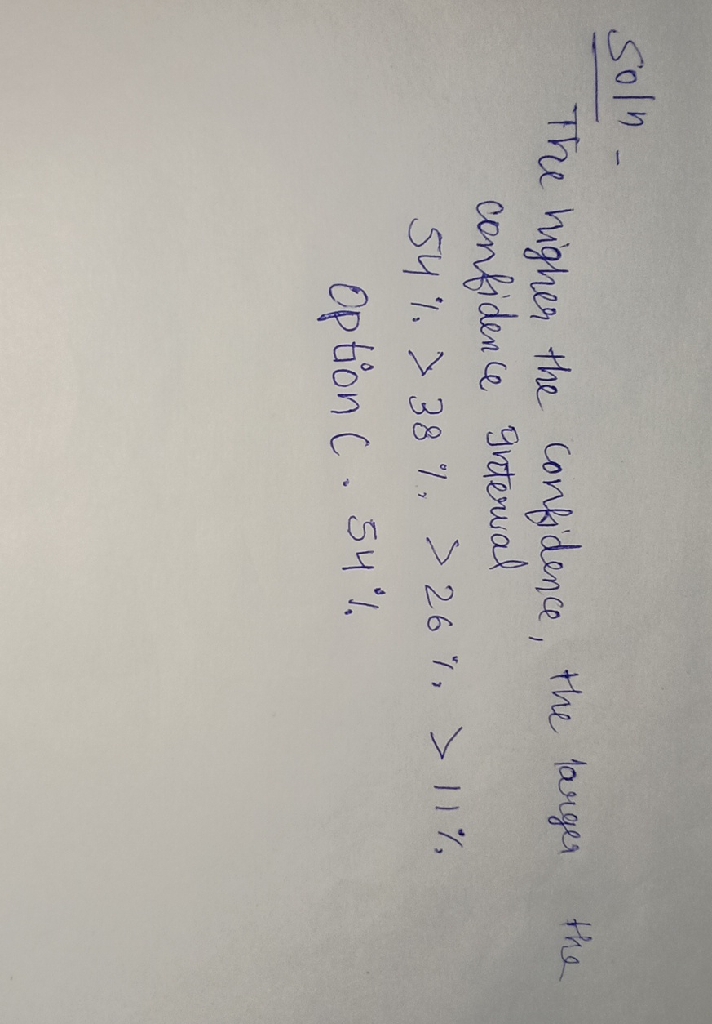 Soln -
The higher the confidence, the larger the
confidence Interval
54% > 38% > 26% > 11%
Option C. 54%